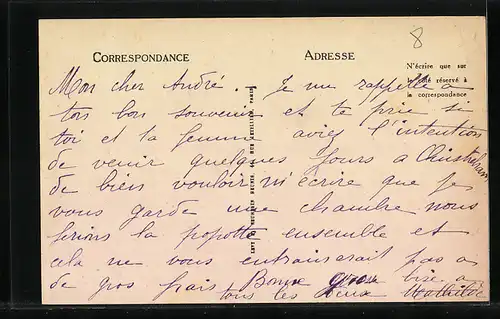 8
CORRESPONDANCE
ADRESSE
N'écrire que sur
le côté réservé à
la correspondance
Mon cher André. Je me rappelle a
ton bon souvenir et te prie si
toi et ta femme aviez l'intention
de venir quelques jours a Ouistreham
de bien vouloir m'écrire que je
vous garde une chambre nous
ferions la popotte ensemble et
cela ne vous entrainerait pas a
de gros frais Bonne grosse bise a
tous les deux Mathilde